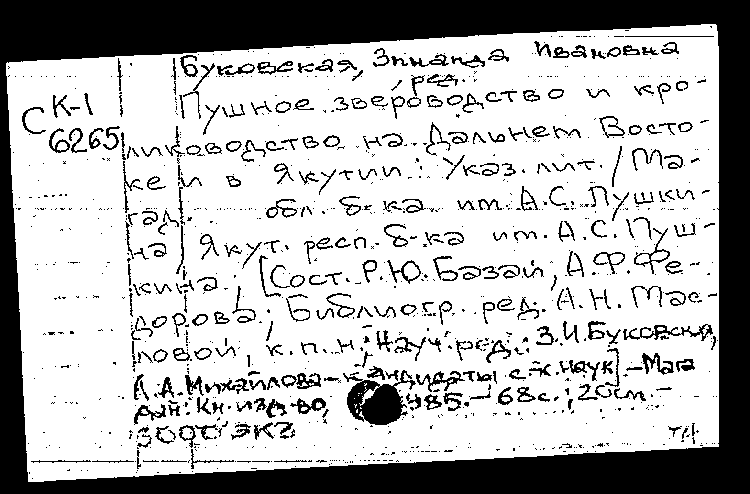 Буковская, Зинаида Ивановна
ред.
С К-1
6265
Пушное звероводство и кро-
лиководство на Дальнем Восто-
ке и в Якутии: Указ. лит. / Ма-
гад. обл. б-ка им. А.С. Пушки-
на, Якут. респ. б-ка им. А.С. Пуш-
кина; [Сост. Р.Ю. Базай, А.Ф. Фе-
дорова; Библиогр. ред. А.Н. Мас-
ловой, к.п.н.; Науч. ред.: З.И. Буковская,
А.А. Михайлова - кандидаты с.-х. наук]. - Мага
дан: Кн. изд-во, 985. - 68с.; 20см. -
3000 экз